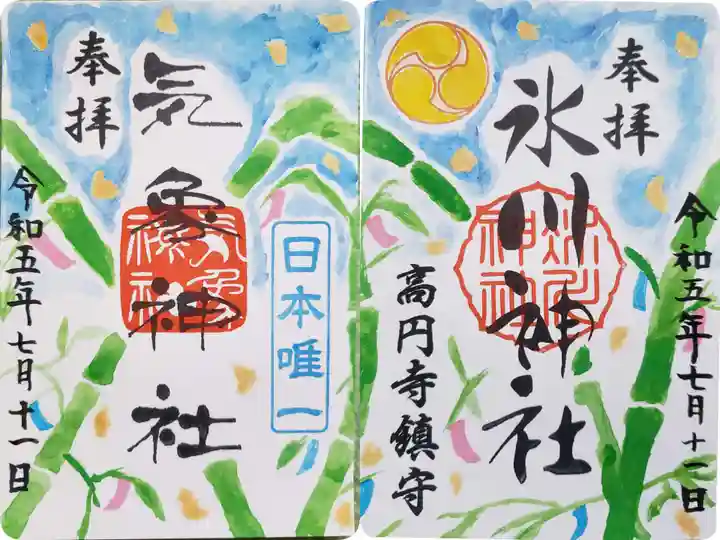 奉拝
氷川神社
氷川神社
高円寺鎮守
令和五年七月十一日
奉拝
気象神社
気象神社
日本唯一
令和五年七月十一日